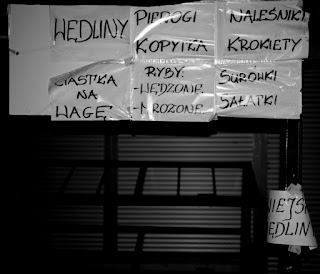 WĘDLINY
PIEROGI
KOPYTKA
NALEŚNIKI
KROKIETY
CIASTKA
NA
WAGĘ
RYBY:
-WĘDZONE
-MROŻONE
SURÓWKI
SAŁATKI